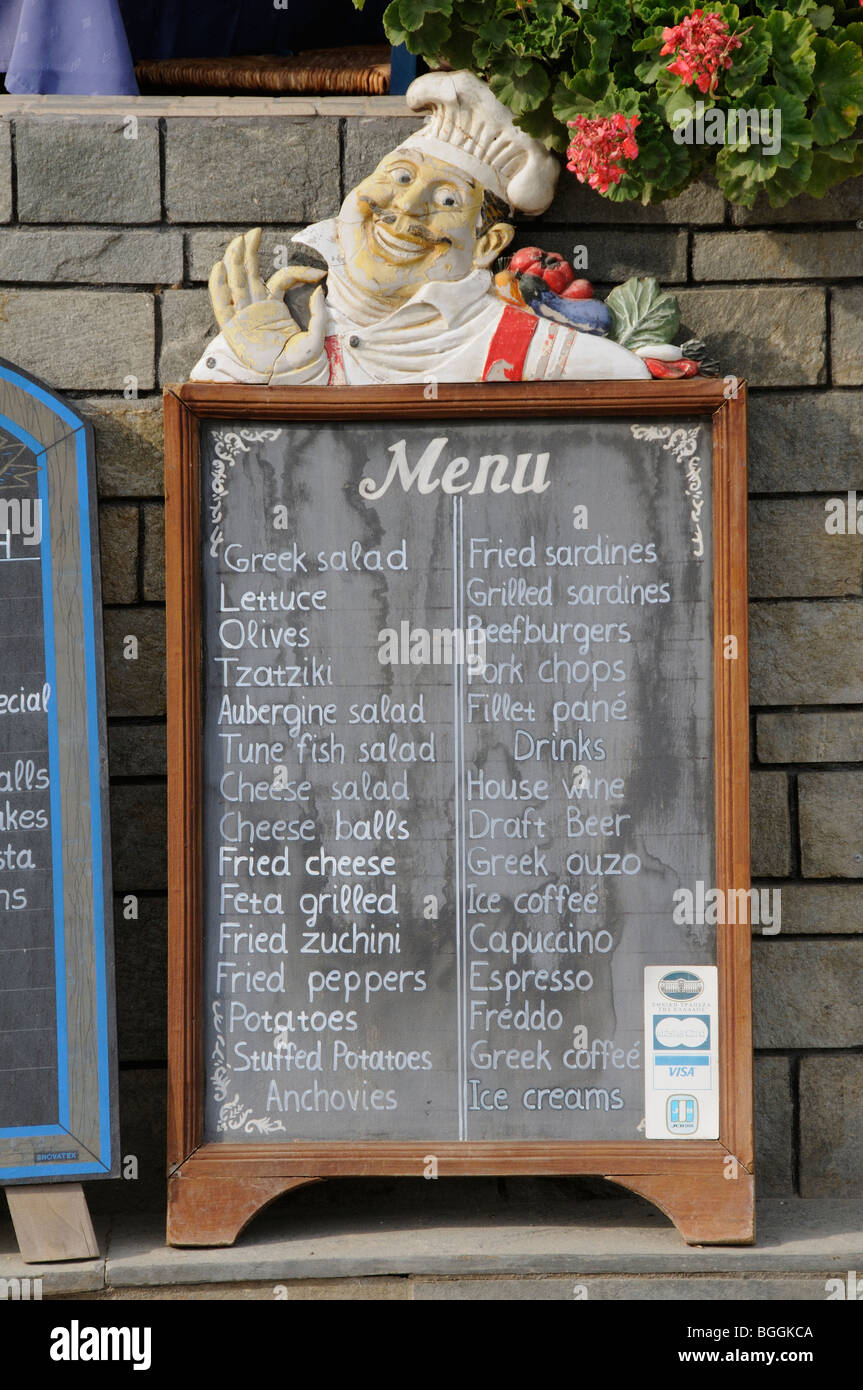 Menu
Greek salad
Lettuce
Olives
Tzatziki
Aubergine salad
Tune fish salad
Cheese salad
Cheese balls
Fried cheese
Feta grilled
Fried zuchini
Fried peppers
Potatoes
Stuffed Potatoes
Anchovies
Fried sardines
Grilled sardines
Beefburgers
Pork chops
Fillet pané
Drinks
House wine
Draft Beer
Greek ouzo
Ice coffeé
Capuccino
Espresso
Fréddo
Greek coffeé
Ice creams
ΕΘΝΙΚΗ ΤΡΑΠΕΖΑ
ΤΗΣ ΕΛΛΑΔΟΣ
VISA
ecial
alls
akes
sta
ns
NOVATEX
alamy
Image ID: BGGKCA
www.alamy.com